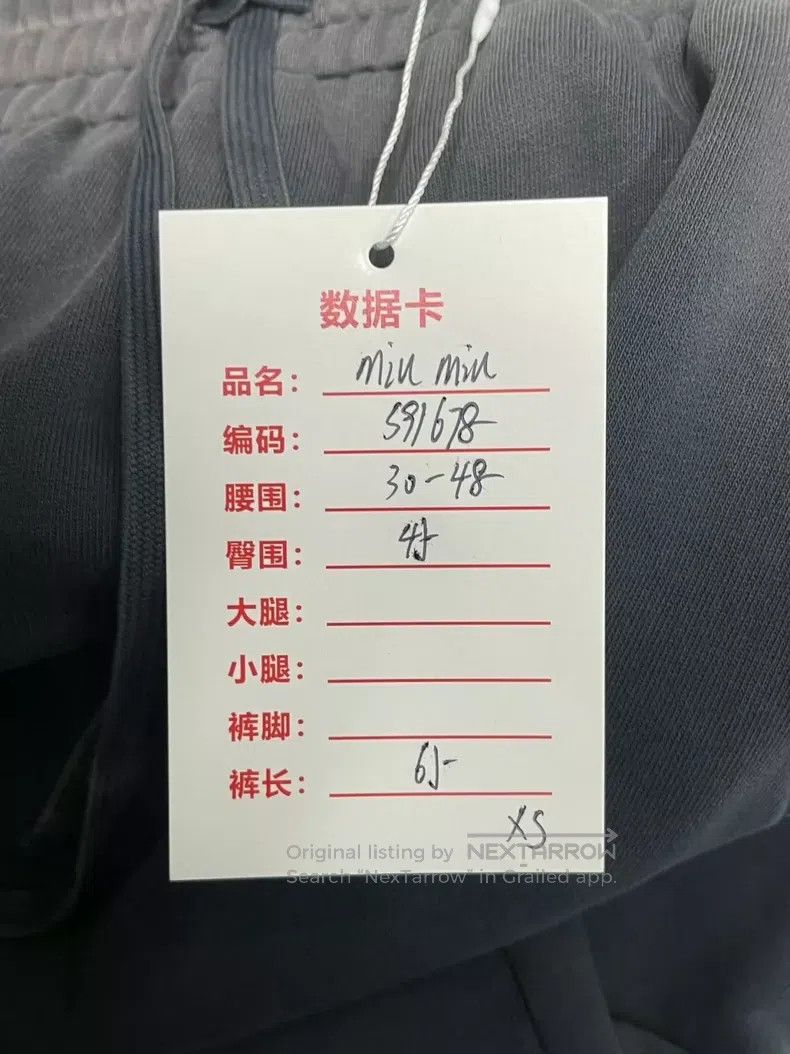 数据卡
品名： miu miu
编码： 591678
腰围： 30-48
臀围：
大腿：
小腿：
裤脚：
裤长：
XS
Original listing by NEXTARROW
Search "NexTarrow" in Grailed app.